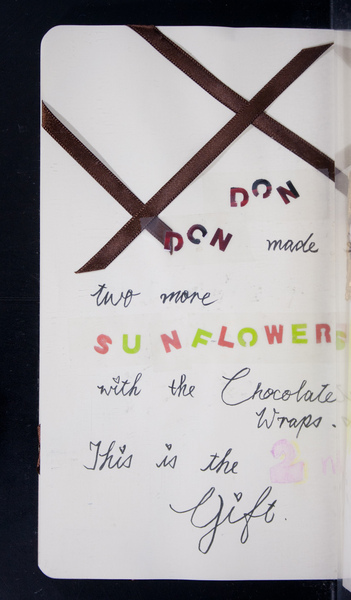 DON
DON made
two more
SUNFLOWERS
with the Chocolate
Wraps.
This is the 2 n
Gift.